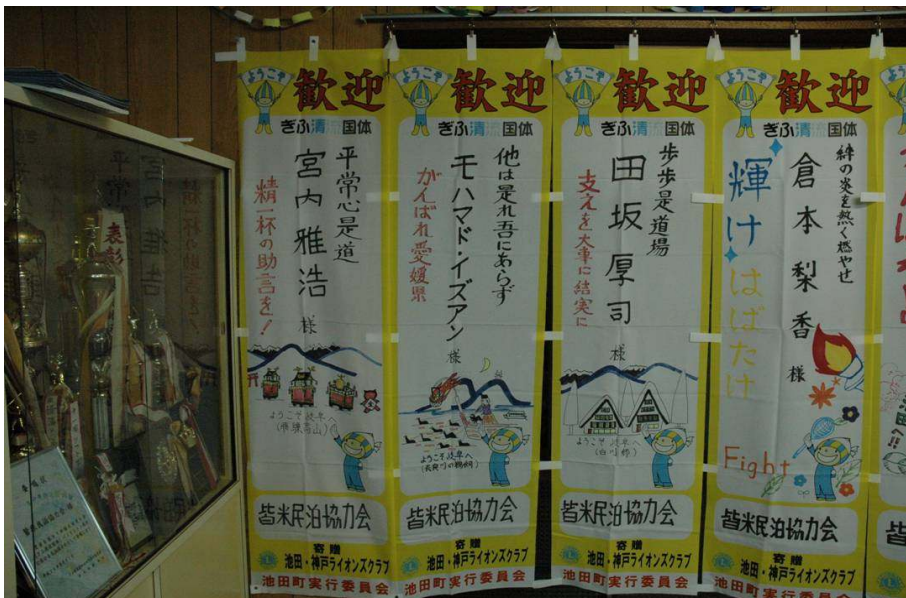 ようこそ
歓迎
ぎふ清流国体
平常心是道
宮内雅浩
様
精一杯の助言を!
ようこそ岐阜へ
皆米民泊協力会
寄贈
池田・神戸ライオンズクラブ
池田町実行委員会
ようこそ
歓迎
ぎふ清流国体
他は是れ吾にあらず
モハマド・イズアン
様
がんばれ愛媛県
ようこそ岐阜へ
(長良川の鵜飼)
皆米民泊協力会
寄贈
池田・神戸ライオンズクラブ
池田町実行委員会
ようこそ
歓迎
ぎふ清流国体
歩歩是道場
田坂厚司
様
支えを大事に結実に
ようこそ岐阜へ
(白川郷)
皆米民泊協力会
寄贈
池田・神戸ライオンズクラブ
池田町実行委員会
ようこそ
歓迎
ぎふ清流国体
絆の炎を熱く燃やせ
倉本梨香
様
輝け
はばたけ
Fight
皆米民泊協力会
寄贈
池田・神戸ライオンズクラブ
池田町実行委員会
皆
表彰